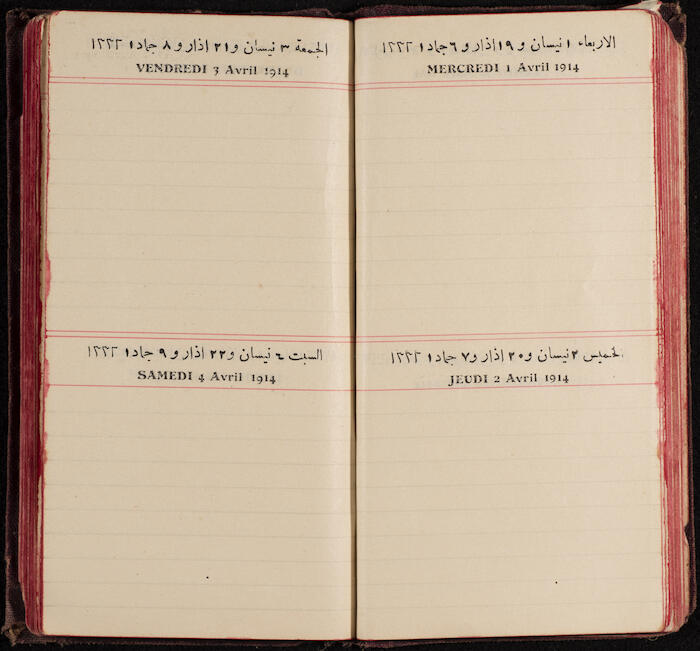 الاربعاء ١ نيسان و ١٩ اذار و ٦ جماد ١ ١٣٣٢
MERCREDI 1 Avril 1914
الخميس ٢ نيسان و ٢٠ اذار و ٧ جماد ١ ١٣٣٢
JEUDI 2 Avril 1914
الجمعة ٣ نيسان و ٢١ اذار و ٨ جماد ١ ١٣٣٢
VENDREDI 3 Avril 1914
السبت ٤ نيسان و ٢٢ اذار و ٩ جماد ١ ١٣٣٢
SAMEDI 4 Avril 1914